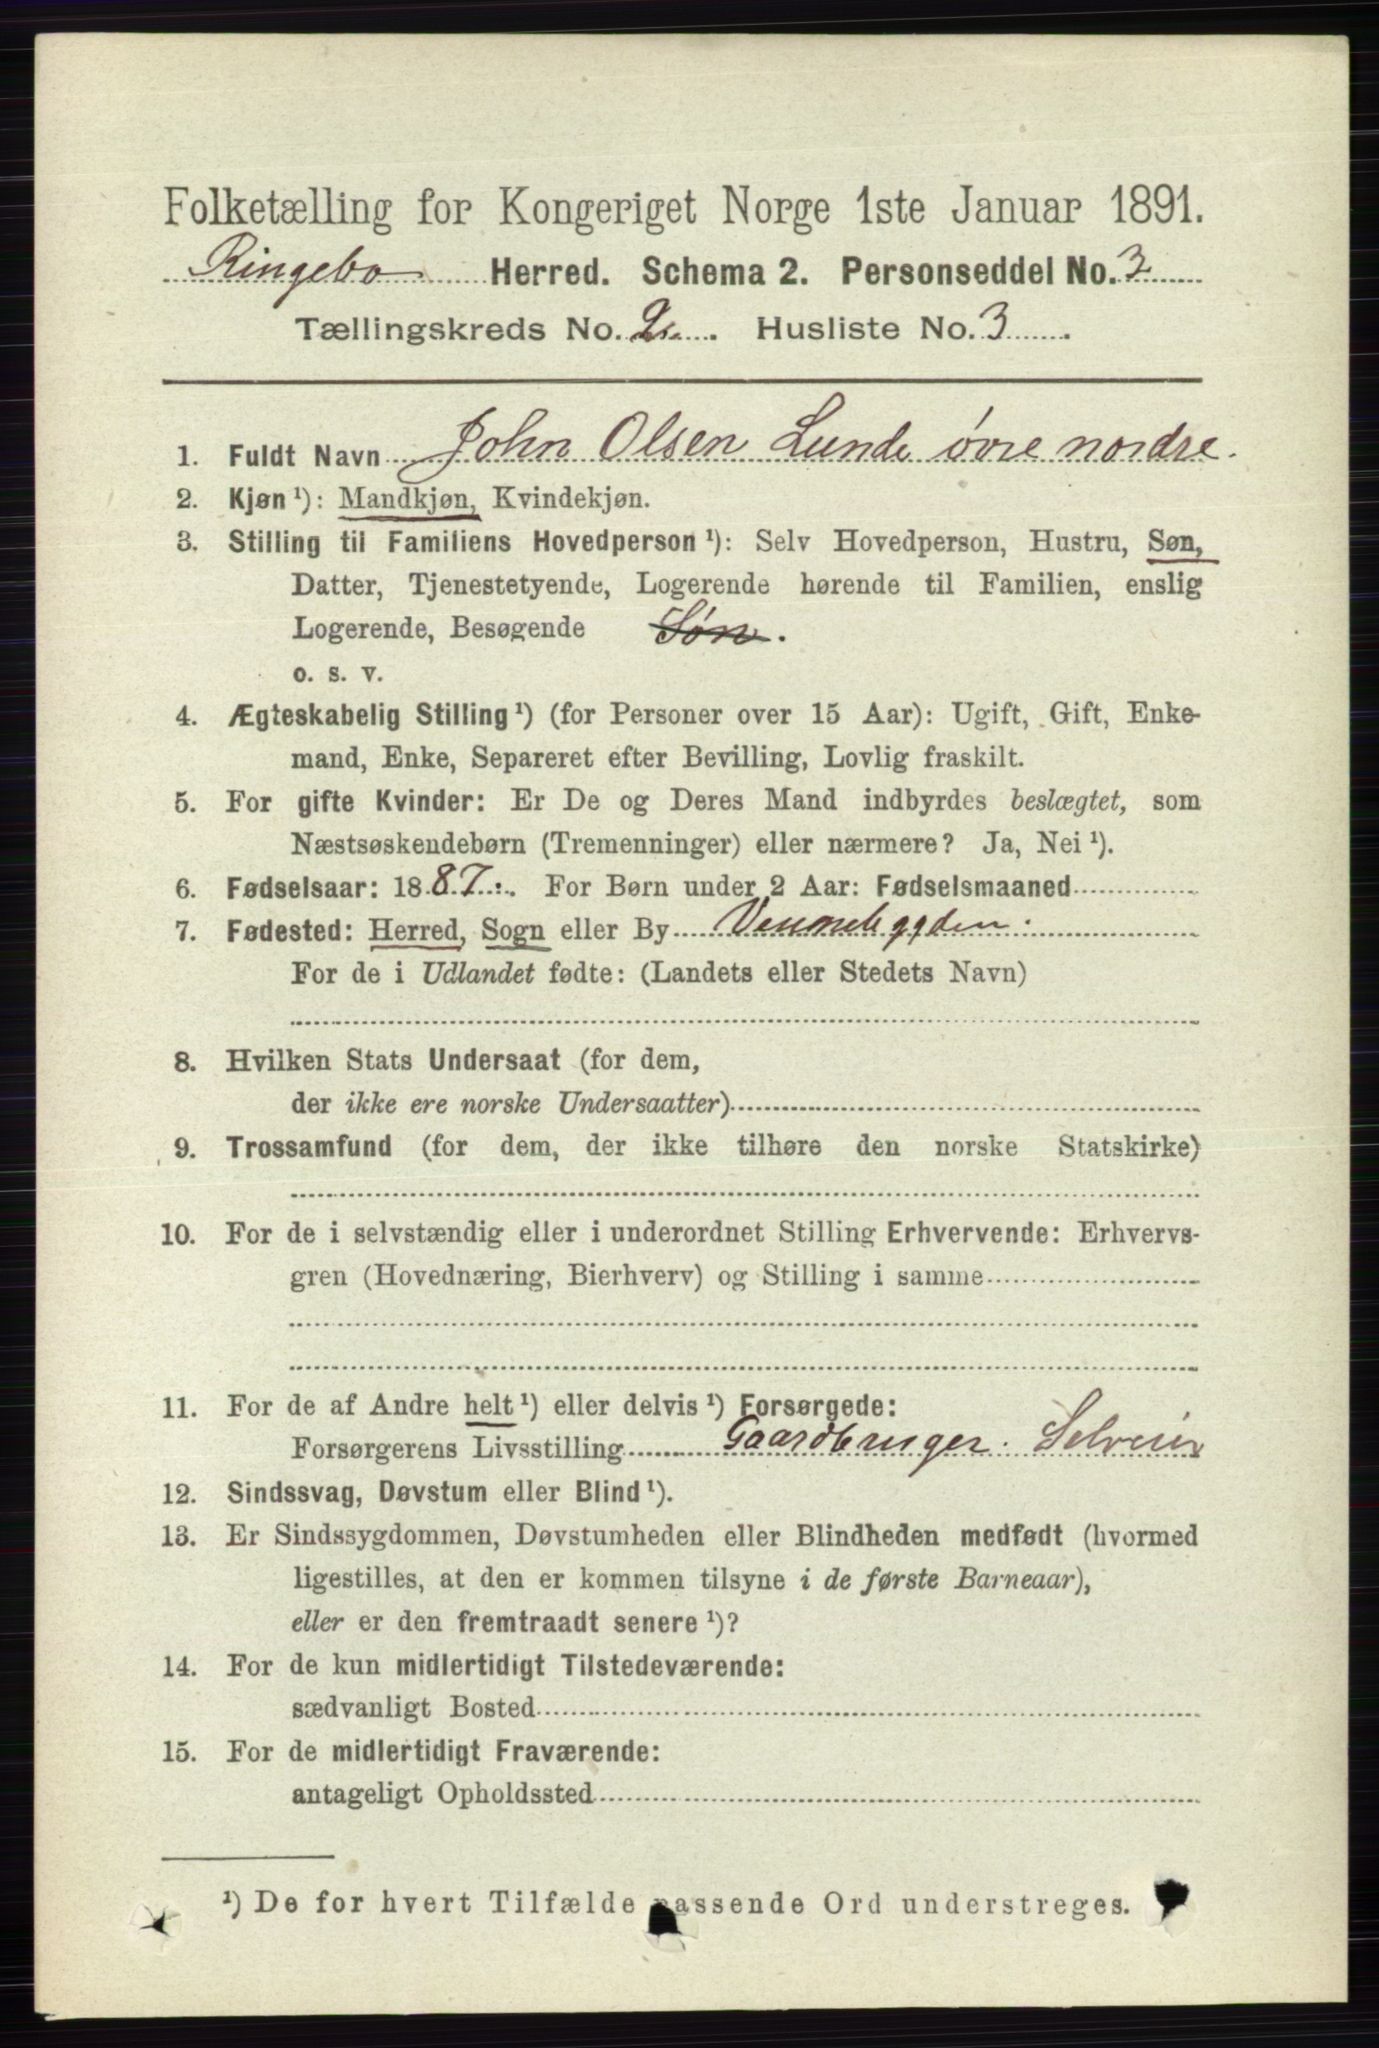 Folketælling for Kongeriget Norge 1ste Januar 1891.
Ringebo Herred. Schema 2. Personseddel No. 3
Tællingskreds No. 2. Husliste No. 3.
1. Fuldt Navn John Olsen Lunde øvre nordre.
2. Kjøn ¹): Mandkjøn, Kvindekjøn.
3. Stilling til Familiens Hovedperson ¹): Selv Hovedperson, Hustru, Søn,
Datter, Tjenestetyende, Logerende hørende til Familien, enslig
Logerende, Besøgende Søn.
o. s. v.
4. Ægteskabelig Stilling ¹) (for Personer over 15 Aar): Ugift, Gift, Enke-
mand, Enke, Separeret efter Bevilling, Lovlig fraskilt.
5. For gifte Kvinder: Er De og Deres Mand indbyrdes beslægtet, som
Næstsøskendebørn (Tremenninger) eller nærmere? Ja, Nei ¹).
6. Fødselsaar: 1887. For Børn under 2 Aar: Fødselsmaaned
7. Fødested: Herred, Sogn eller By Vennebygden.
For de i Udlandet fødte: (Landets eller Stedets Navn)
8. Hvilken Stats Undersaat (for dem,
der ikke ere norske Undersaatter)
9. Trossamfund (for dem, der ikke tilhøre den norske Statskirke)
10. For de i selvstændig eller i underordnet Stilling Erhvervende: Erhvervs-
gren (Hovednæring, Bierhverv) og Stilling i samme
11. For de af Andre helt ¹) eller delvis ¹) Forsørgede:
Forsørgerens Livsstilling Gaardbruger. Selveier
12. Sindssvag, Døvstum eller Blind ¹).
13. Er Sindssygdommen, Døvstumheden eller Blindheden medfødt (hvormed
ligestilles, at den er kommen tilsyne i de første Barneaar),
eller er den fremtraadt senere ¹)?
14. For de kun midlertidigt Tilstedeværende:
sædvanligt Bosted
15. For de midlertidigt Fraværende:
antageligt Opholdssted
¹) De for hvert Tilfælde passende Ord understreges.